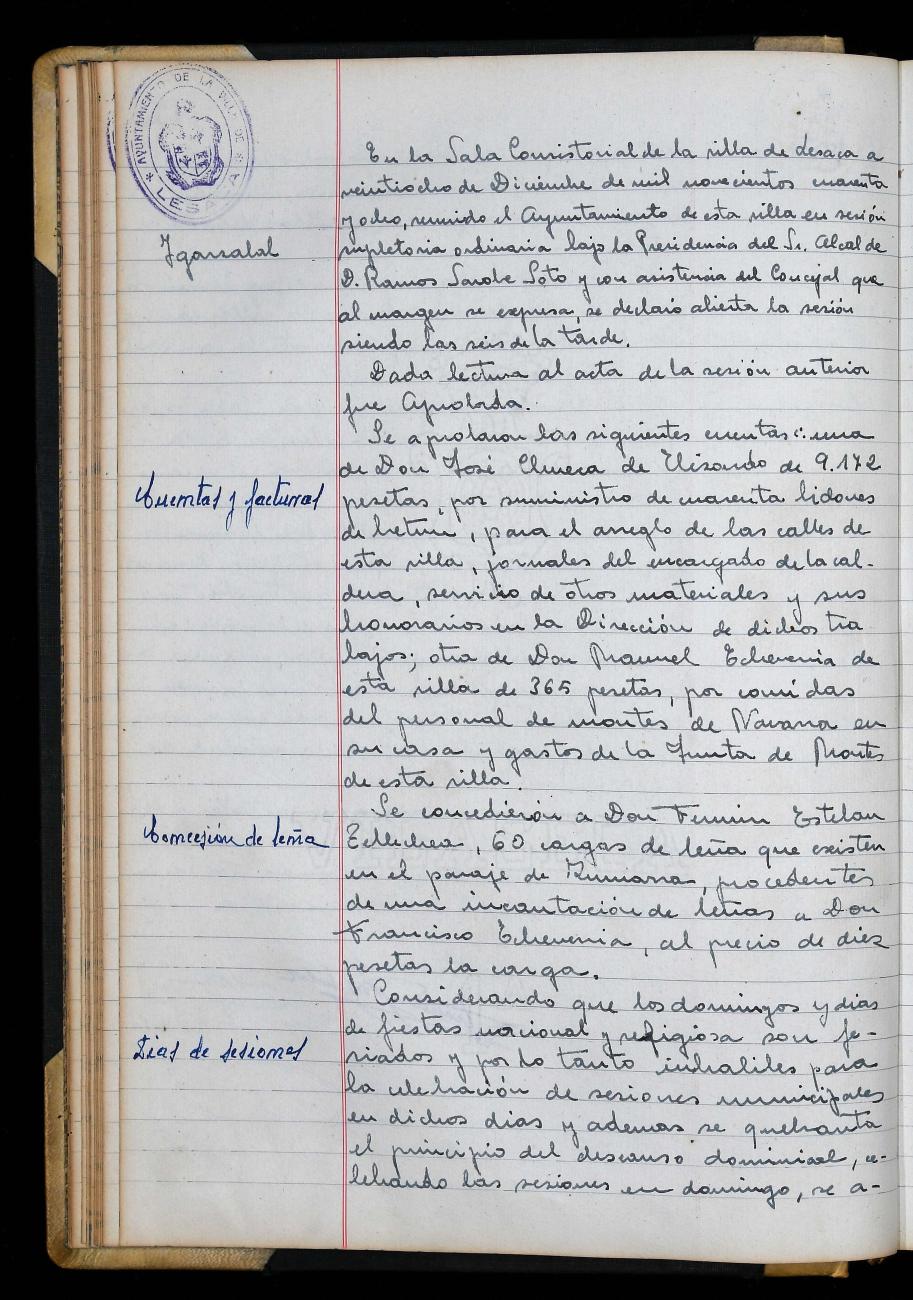 AYUNTAMIENTO DE LA VILLA DE
LESACA
Igarzabal
En la Sala Consistorial de la villa de Lesaca a
veintiocho de Diciembre de mil novecientos cuarenta
y ocho, reunido el Ayuntamiento de esta villa en sesión
supletoria ordinaria bajo la Presidencia del Sr. Alcalde
D. Ramos Sarobe Soto y con asistencia del Concejal que
al margen se expresa, se declaró abierta la sesión
siendo las seis de la tarde.
Dada lectura al acta de la sesión anterior
fue Aprobada.
Se aprobaron las siguientes cuentas: una
Cuentas y facturas
de Don José de Elizondo de 9.172
pesetas, por suministro de cuarenta bidones
de betun, para el arreglo de las calles de
esta villa, jornales del encargado de la cal-
dera, servicio de otros materiales y sus
honorarios en la Dirección de dichos tra
bajos; otra de Don Manuel Echeverria de
esta villa de 365 pesetas, por comidas
del personal de montes de Navarra en
su casa y gastos de la Junta de Montes
de esta villa.
Concejión de leña
Se concedieron a Don Fermin Esteban
Tellechea, 60 cargas de leña que existen
en el paraje de procedentes
de una incautación de leñas a Don
Francisco Echeverria, al precio de diez
pesetas la carga.
Dias de sesiones
Considerando que los domingos y dias
de fiestas nacional y religiosa son fe-
riados y por lo tanto inhabiles para
la celebración de sesiones municipales
en dichos dias y ademas se quebranta
el principio del descanso dominical, ce-
lebrando las sesiones en domingo, se a-